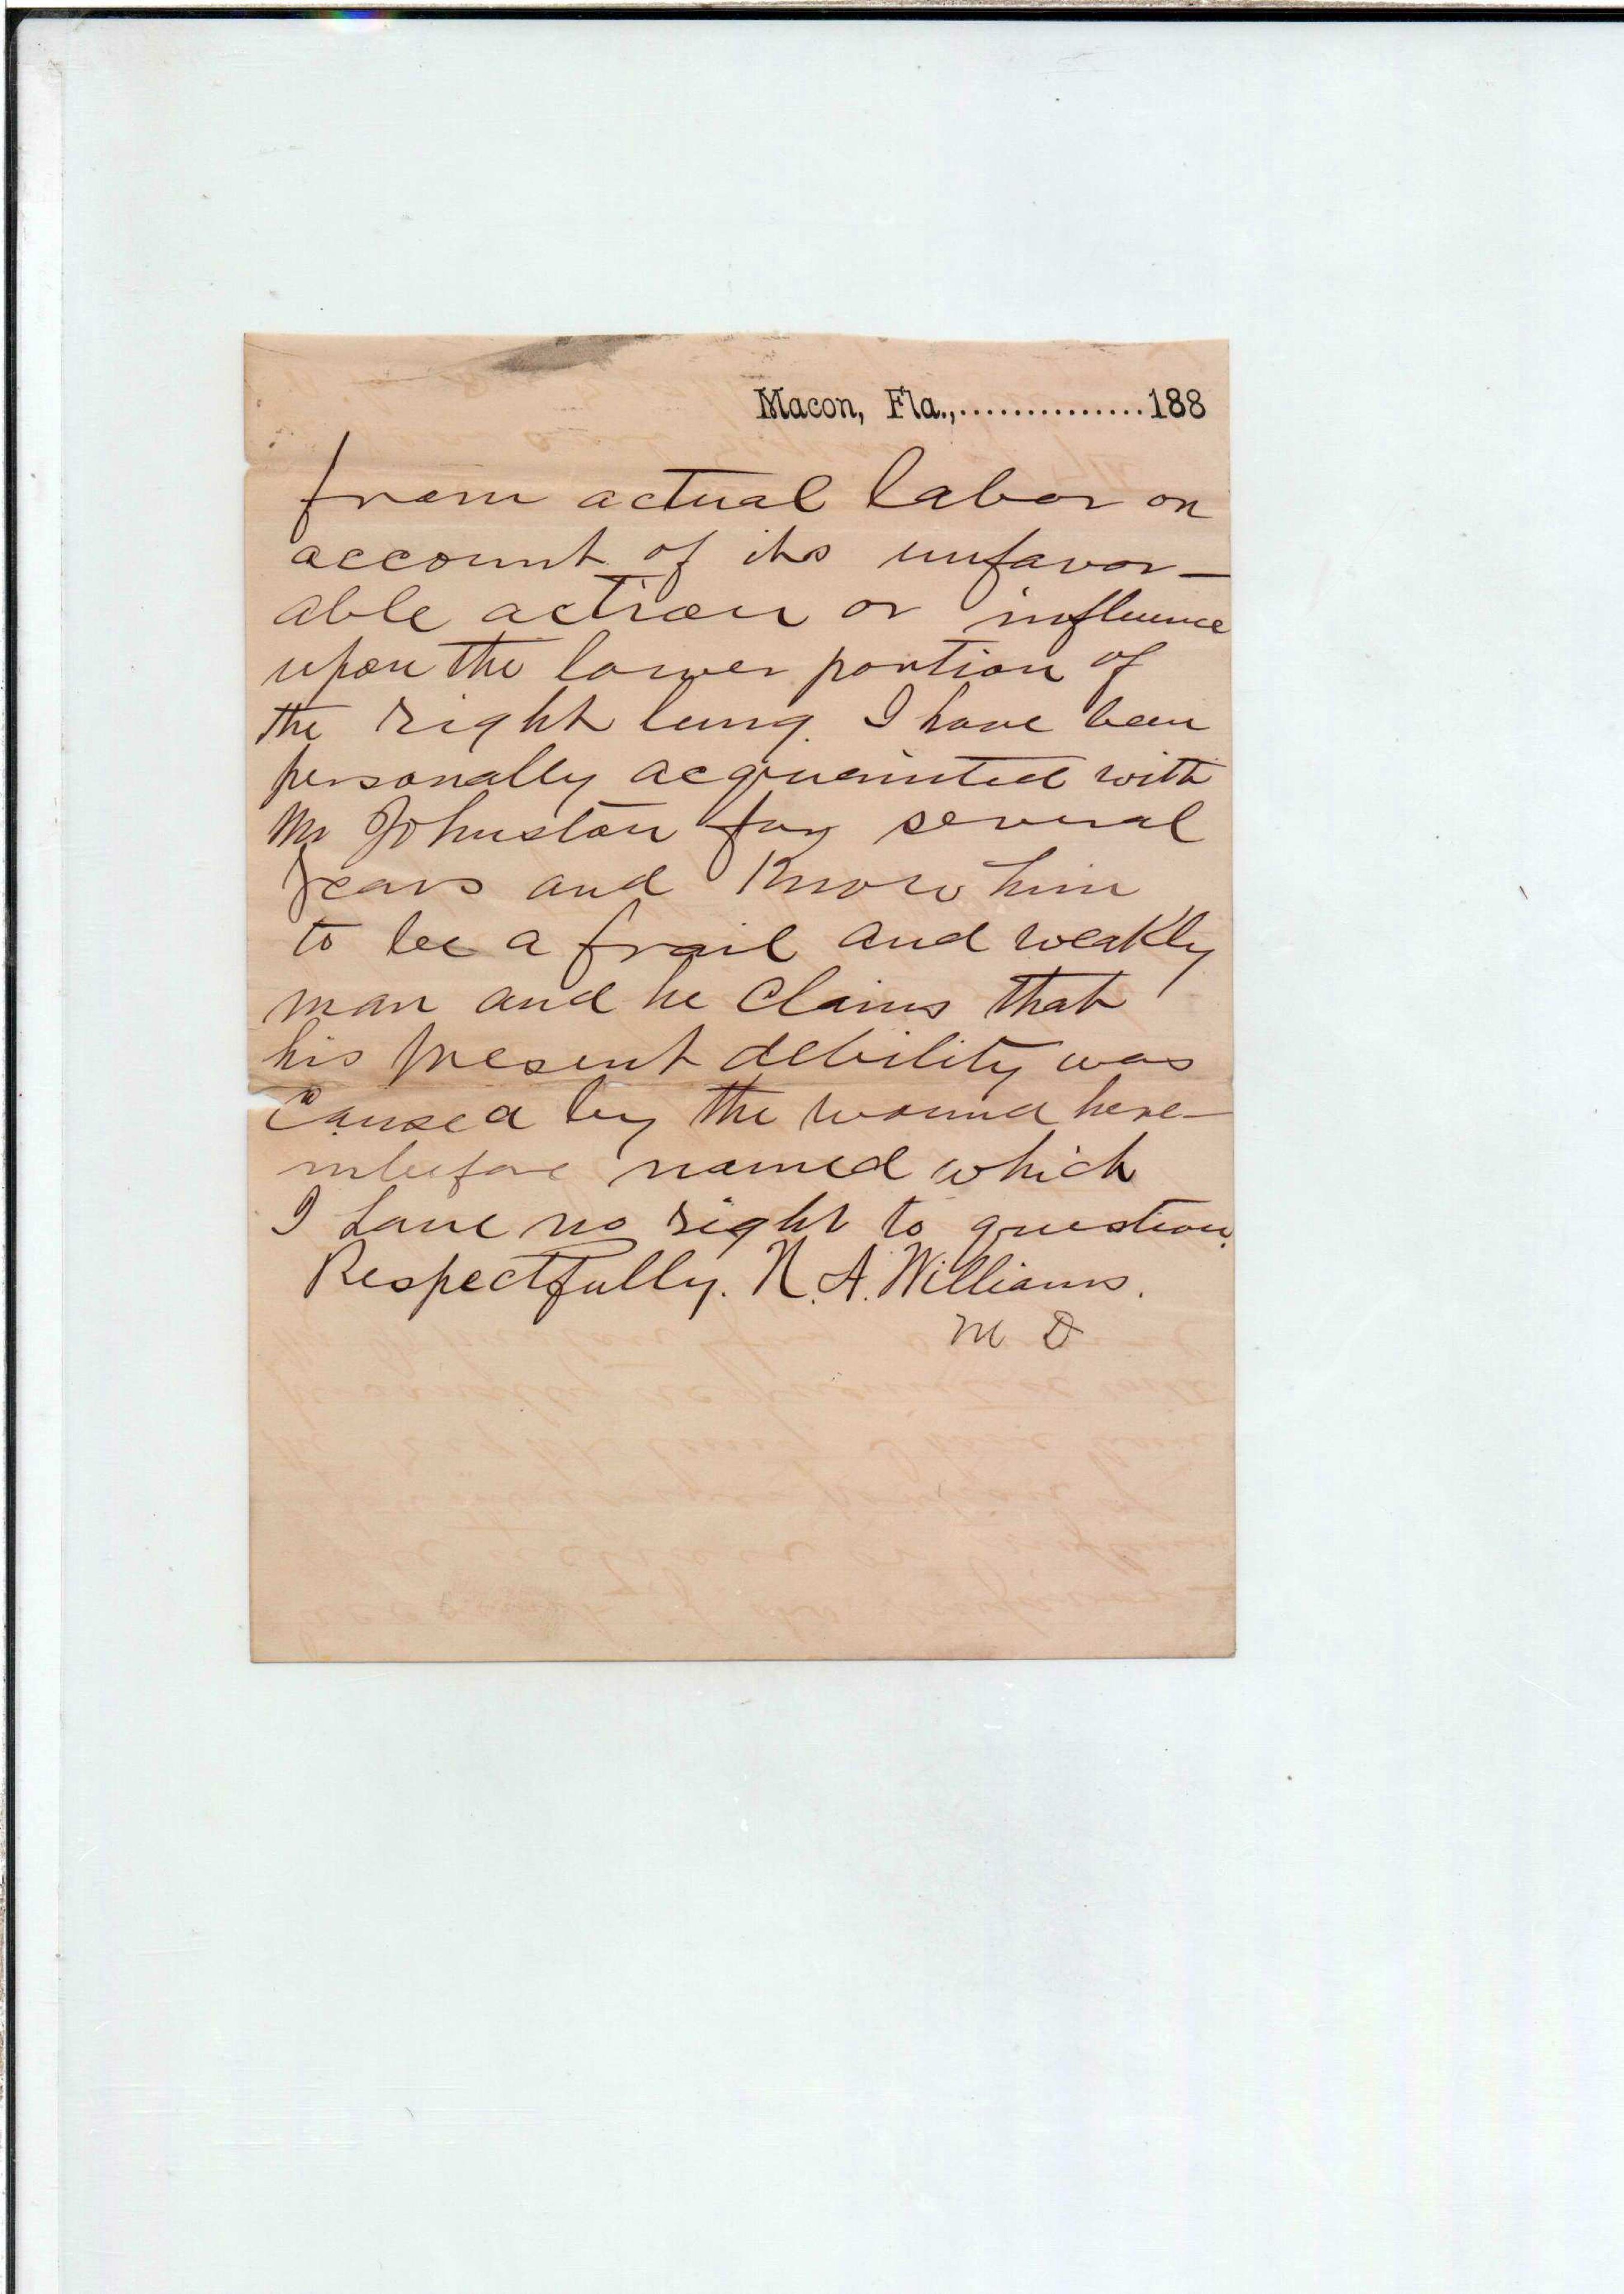 Macon, Fla.,...............188
from actual labor on
account of its unfavor-
able action or influence
upon the lower portion of
the right lung. I have been
personally acquainted with
Mr Johnston for several
years and Know him
to be a frail and weakly
man and he Claims that
his present debility was
Caused by the wound here-
inbefore named which
I have no right to question.
Respectfully. N. A. Williams.
M D